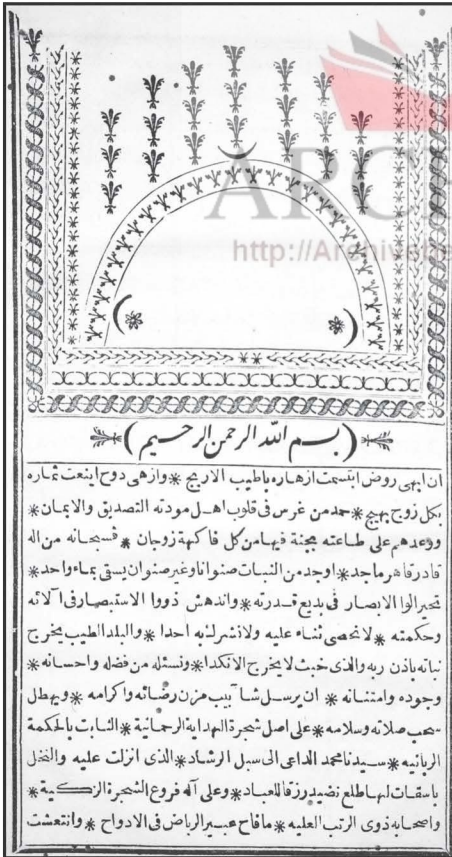 ARC
http://Archivebe
(بسم الله الرحمن الرحيم)
ان ابهى روض ابتسمت ازهاره باطيب الاريج * وازهى دوح اينعت ثماره
بكل زوج بهيج * حمد من غرس فى قلوب اهل مودته التصديق والايمان *
ووعدهم على طاعته بجنة فيها من كل فاكهة زوجان * فسبحانه من اله
قادر قاهر ماجد * اوجد من النبات صنوانا وغير صنوان يسقى بماء واحد *
تحير اولوا الابصار فى بديع قدرته * واندهش ذووا الاستبصار فى آلائه
وحكمته * لا نحصى ثناء عليه ولا نشرك به احدا * والبلد الطيب يخرج
نباته باذن ربه والذى خبث لا يخرج الا نكدا * ونسئله من فضله واحسانه *
وجوده وامتنانه * ان يرسل شآبيب مزن رضائه واكرامه * ويهطل
سحب صلاته وسلامه * على اصل شجرة الهداية الرحمانية * الثابت بالحكمة
الربانيه * سيدنا محمد الداعى الى سبل الرشاد * الذى انزلت عليه والنخل
باسقات لها طلع نضيد رزقا للعباد * وعلى آله فروع الشجرة الزكية *
واصحابه ذوى الرتب العليه * ما فاح عبير الرياض فى الادواح * وانتعشت